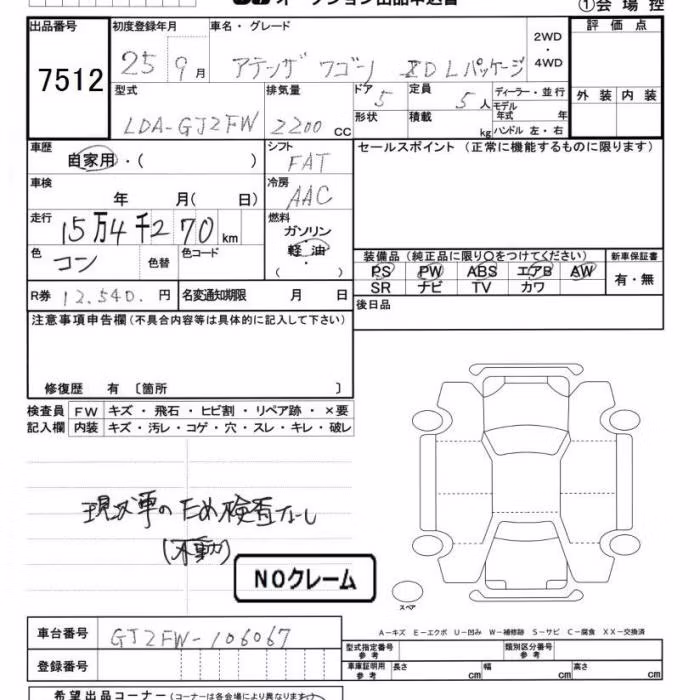 オークション出品申込書
①会場控
出品番号 初度登録年月 車名・グレード 評価点
7512 25 9月 アテンザ ワゴン XDLパッケージ 2WD・4WD
型式 排気量 ドア 定員 ディーラー・並行 外装 内装
LDA-GJ2FW 2200 CC 5 5人 モデル年式 年
形状 積載 kg ハンドル 左・右
車歴 シフト セールスポイント (正常に機能するものに限ります)
自家用・( ) FAT
車検 冷房
年 月( 日) AAC
走行 燃料
15万4千270 km ガソリン
色 色替 色コード 軽油
コン ( )
装備品 (純正品に限り○をつけてください) 新車保証書
PS PW ABS エアB AW 有・無
SR ナビ TV カワ
R券 12,540. 円 名変通知期限 月 日 後日品
注意事項申告欄 (不具合内容等は具体的に記入して下さい)
修復歴 有 〔箇所 〕
検査員 FW キズ・飛石・ヒビ割・リペア跡・×要
記入欄 内装 キズ・汚レ・コゲ・穴・スレ・キレ・破レ
現状車のため検査なし
(不動)
NOクレーム
スペア
A-キズ E-エクボ U-凹み W-補修跡 S-サビ C-腐食 XX-交換済
車台番号 GJ2FW-106067
型式指定番号 参考 類別区分番号 参考
登録番号
車庫証明用 参考 長さ cm 幅 cm 高さ cm
希望出品コーナー (コーナーは各会場により異なります)